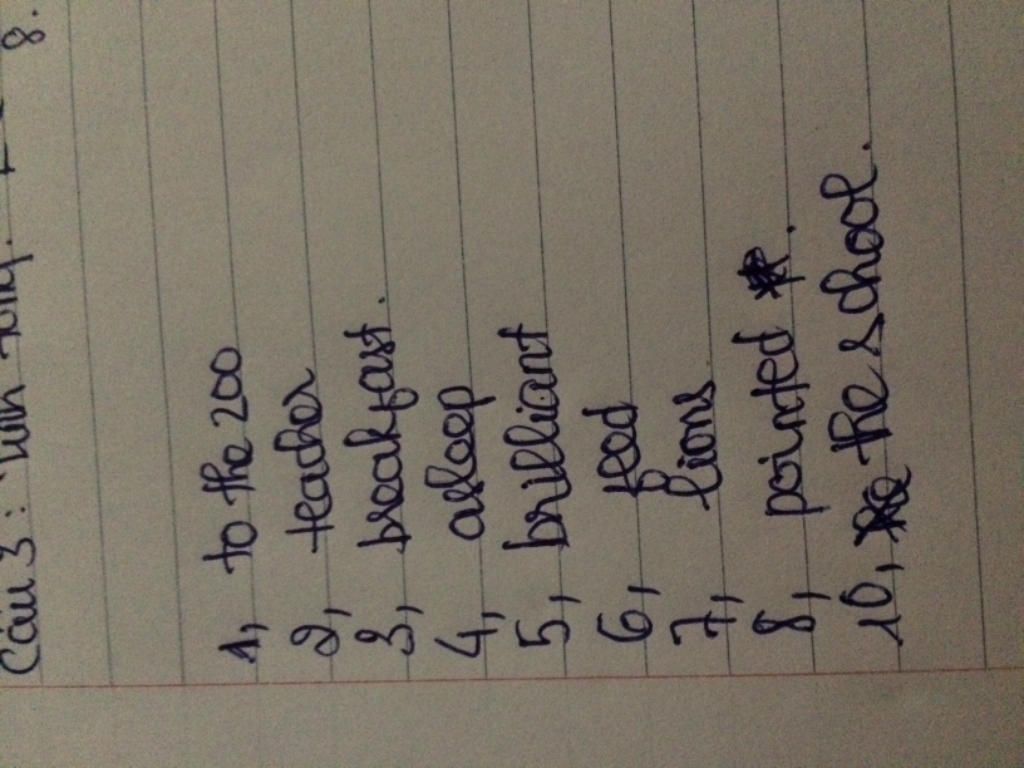 Câu 3:
8.
1, to the zoo
2, teacher
3, breakfast.
4, asleep
5, brilliant
6, feed
7, lions
8, pointed.
10, the school.